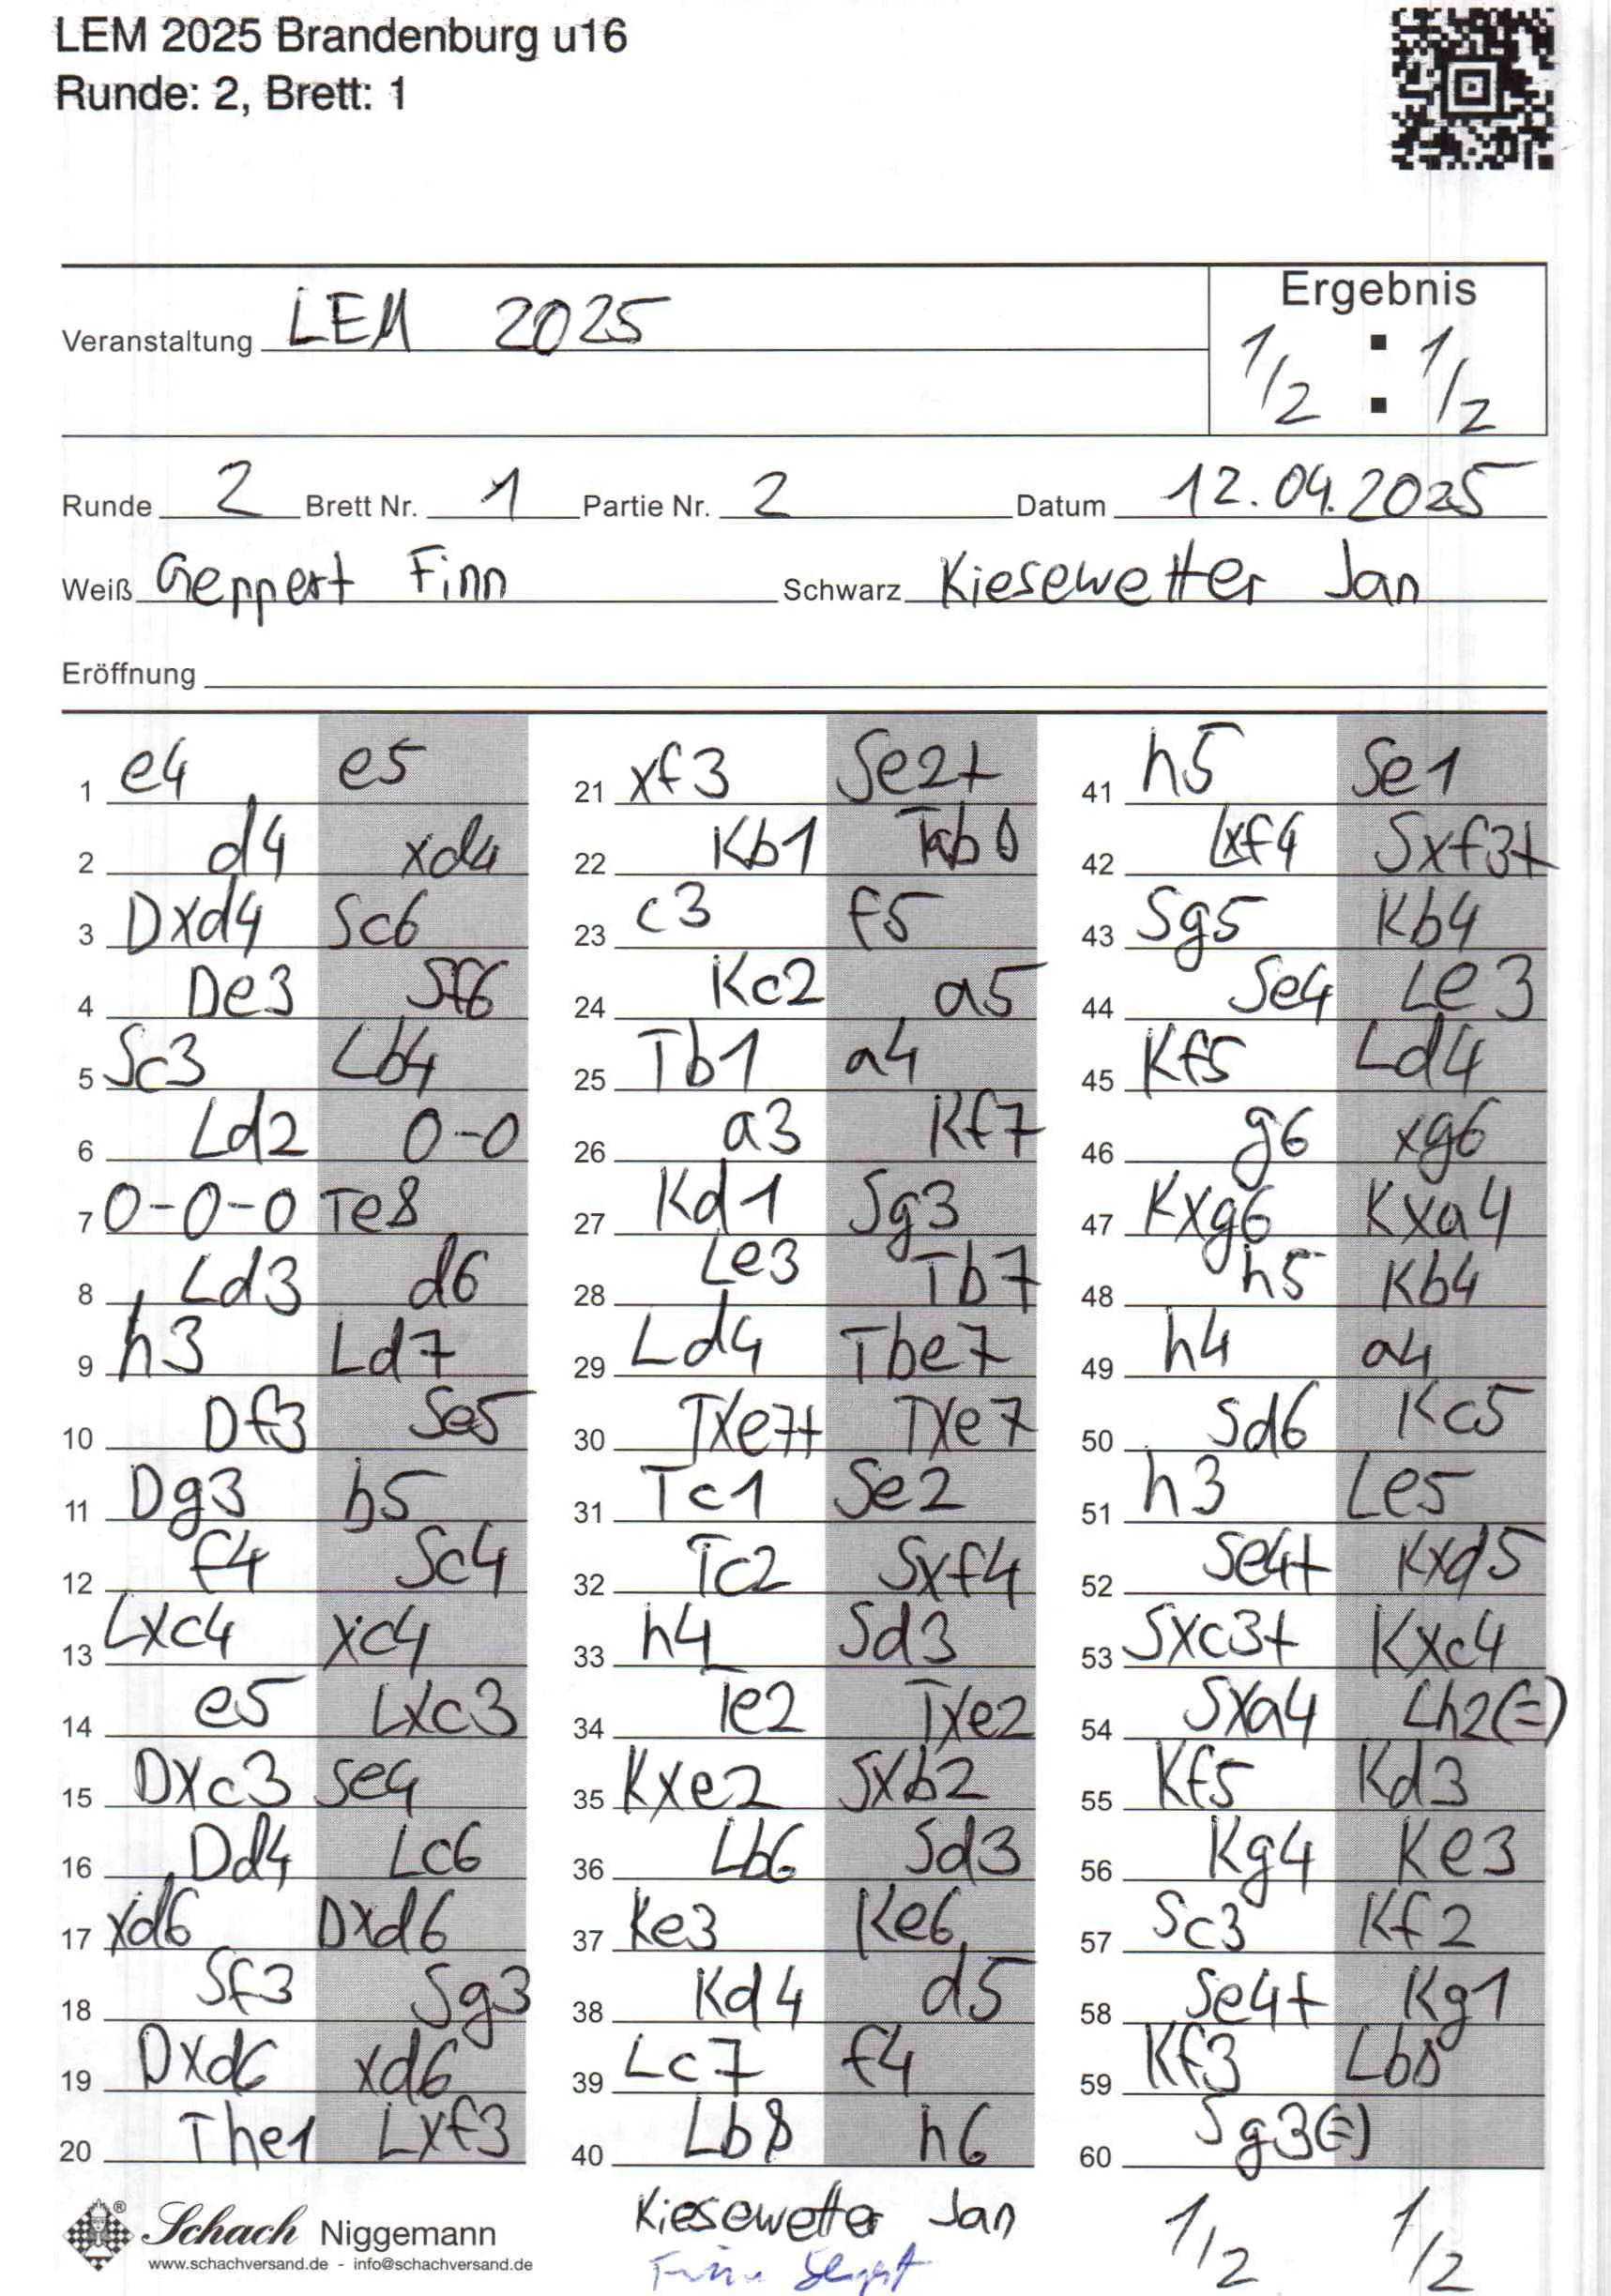 LEM 2025 Brandenburg u16
Runde: 2, Brett: 1
Ergebnis
Veranstaltung LEM 2025
1/2 : 1/2
Runde 2 Brett Nr. 1 Partie Nr. 2 Datum 12.04.2025
Weiß Geppert Finn Schwarz Kiesewetter Jan
Eröffnung
1 e4 e5
2 d4 xd4
3 Dxd4 Sc6
4 De3 Sf6
5 Sc3 Lb4
6 Ld2 0-0
7 0-0-0 Te8
8 Ld3 d6
9 h3 Ld7
10 Df3 Se5
11 Dg3 b5
12 f4 Sc4
13 Lxc4 xc4
14 e5 Lxc3
15 Dxc3 Se4
16 Dd4 Lc6
17 xd6 Dxd6
18 Sf3 Sg3
19 Dxd6 xd6
20 The1 Lxf3
21 xf3 Se2+
22 Kb1 Tab8
23 c3 f5
24 Kc2 a5
25 Tb1 a4
26 a3 Kf7
27 Kd1 Sg3
28 Le3 Tb7
29 Ld4 Tbe7
30 Txe7+ Txe7
31 Tc1 Se2
32 Tc2 Sxf4
33 h4 Sd3
34 Te2 Txe2
35 Kxe2 Sxb2
36 Lb6 Sd3
37 Ke3 Ke6
38 Kd4 d5
39 Lc7 f4
40 Lb8 h6
41 h5 Se1
42 Lxf4 Sxf3+
43 Sg5 Kb4
44 Se4 Le3
45 Kf5 Ld4
46 g6 xg6
47 Kxg6 Kxa4
48 h5 Kb4
49 h4 a4
50 Sd6 Kc5
51 h3 Le5
52 Se4+ Kxd5
53 Sxc3+ Kxc4
54 Sxa4 Lh2(=)
55 Kf5 Kd3
56 Kg4 Ke3
57 Sc3 Kf2
58 Se4+ Kg1
59 Kf3 Lb8
60 Sg3(=)
Schach Niggemann
www.schachversand.de - info@schachversand.de
Kiesewetter Jan
1/2 1/2